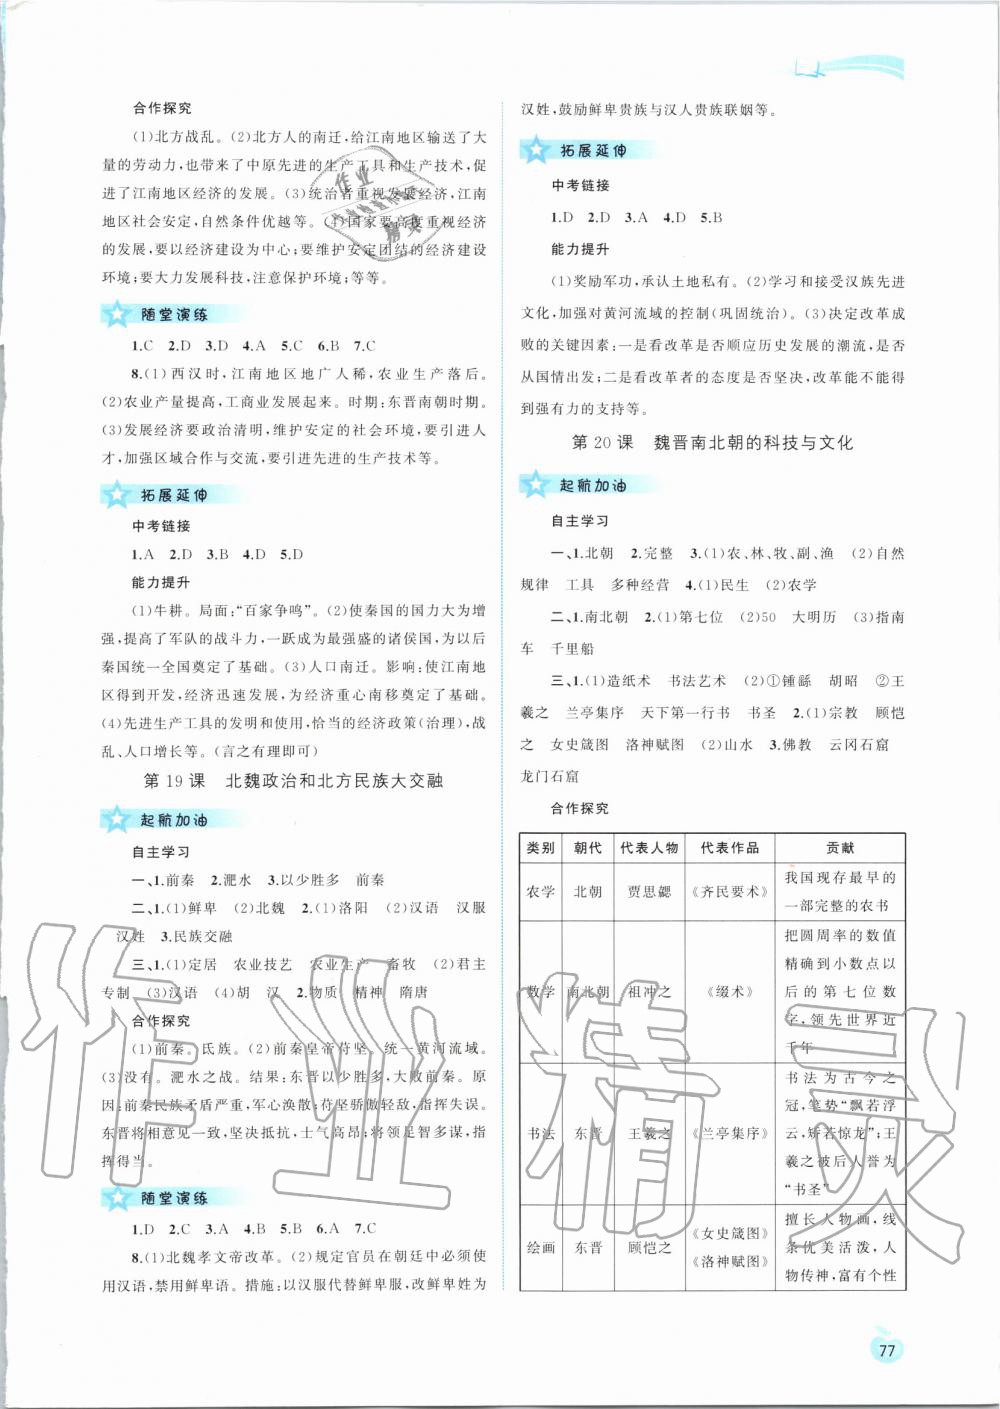 合作探究
(1)北方战乱。(2)北方人的南迁,给江南地区输送了大
量的劳动力,也带来了中原先进的生产工具和生产技术,促
进了江南地区经济的发展。(3)统治者重视发展经济,江南
地区社会安定,自然条件优越等。(4)国家要高度重视经济
的发展,要以经济建设为中心;要维护安定团结的经济建设
环境;要大力发展科技,注意保护环境;等等。
随堂演练
1.C 2.D 3.D 4.A 5.C 6.B 7.C
8.(1)西汉时,江南地区地广人稀,农业生产落后。
(2)农业产量提高,工商业发展起来。时期:东晋南朝时期。
(3)发展经济要政治清明,维护安定的社会环境,要引进人
才,加强区域合作与交流,要引进先进的生产技术等。
拓展延伸
中考链接
1.A 2.D 3.B 4.D 5.D
能力提升
(1)牛耕。局面:“百家争鸣”。(2)使秦国的国力大为增
强,提高了军队的战斗力,一跃成为最强盛的诸侯国,为以后
秦国统一全国奠定了基础。(3)人口南迁。影响:使江南地
区得到开发,经济迅速发展,为经济重心南移奠定了基础。
(4)先进生产工具的发明和使用,恰当的经济政策(治理),战
乱、人口增长等。(言之有理即可)
第19课 北魏政治和北方民族大交融
起航加油
自主学习
一、1.前秦 2.淝水 3.以少胜多 前秦
二、1.(1)鲜卑 (2)北魏 2.(1)洛阳 (2)汉语 汉服
汉姓 3.民族交融
三、1.(1)定居 农业技艺 农业生产 畜牧 (2)君主
专制 (3)汉语 (4)胡 汉 2.物质 精神 隋唐
合作探究
(1)前秦。氐族。(2)前秦皇帝苻坚。统一黄河流域。
(3)没有。淝水之战。结果:东晋以少胜多,大败前秦。原
因:前秦民族矛盾严重,军心涣散;苻坚骄傲轻敌,指挥失误。
东晋将相意见一致,坚决抵抗,士气高昂;将领足智多谋,指
挥得当。
随堂演练
1.D 2.C 3.A 4.B 5.B 6.A 7.C
8.(1)北魏孝文帝改革。(2)规定官员在朝廷中必须使
用汉语,禁用鲜卑语。措施:以汉服代替鲜卑服,改鲜卑姓为
汉姓,鼓励鲜卑贵族与汉人贵族联姻等。
拓展延伸
中考链接
1.D 2.D 3.A 4.D 5.B
能力提升
(1)奖励军功,承认土地私有。(2)学习和接受汉族先进
文化,加强对黄河流域的控制(巩固统治)。(3)决定改革成
败的关键因素:一是看改革是否顺应历史发展的潮流,是否
从国情出发;二是看改革者的态度是否坚决,改革能不能得
到强有力的支持等。
第20课 魏晋南北朝的科技与文化
起航加油
自主学习
一、1.北朝 2.完整 3.(1)农、林、牧、副、渔 (2)自然
规律 工具 多种经营 4.(1)民生 (2)农学
二、1.南北朝 2.(1)第七位 (2)50 大明历 (3)指南
车 千里船
三、1.(1)造纸术 书法艺术 (2)①锺繇 胡昭 ②王
羲之 兰亭集序 天下第一行书 书圣 2.(1)宗教 顾恺
之 女史箴图 洛神赋图 (2)山水 3.佛教 云冈石窟
龙门石窟
合作探究
类别 朝代 代表人物 代表作品 贡献
农学 北朝 贾思勰 《齐民要术》 我国现存最早的
一部完整的农书
数学 南北朝 祖冲之 《缀术》 把圆周率的数值
精确到小数点以
后的第七位数
字,领先世界近
千年
书法 东晋 王羲之 《兰亭集序》 书法为古今之
冠,笔势“飘若浮
云,矫若惊龙”;王
羲之被后人誉为
“书圣”
绘画 东晋 顾恺之 《女史箴图》
《洛神赋图》 擅长人物画,线
条优美活泼,人
物传神,富有个性
77
作业精灵